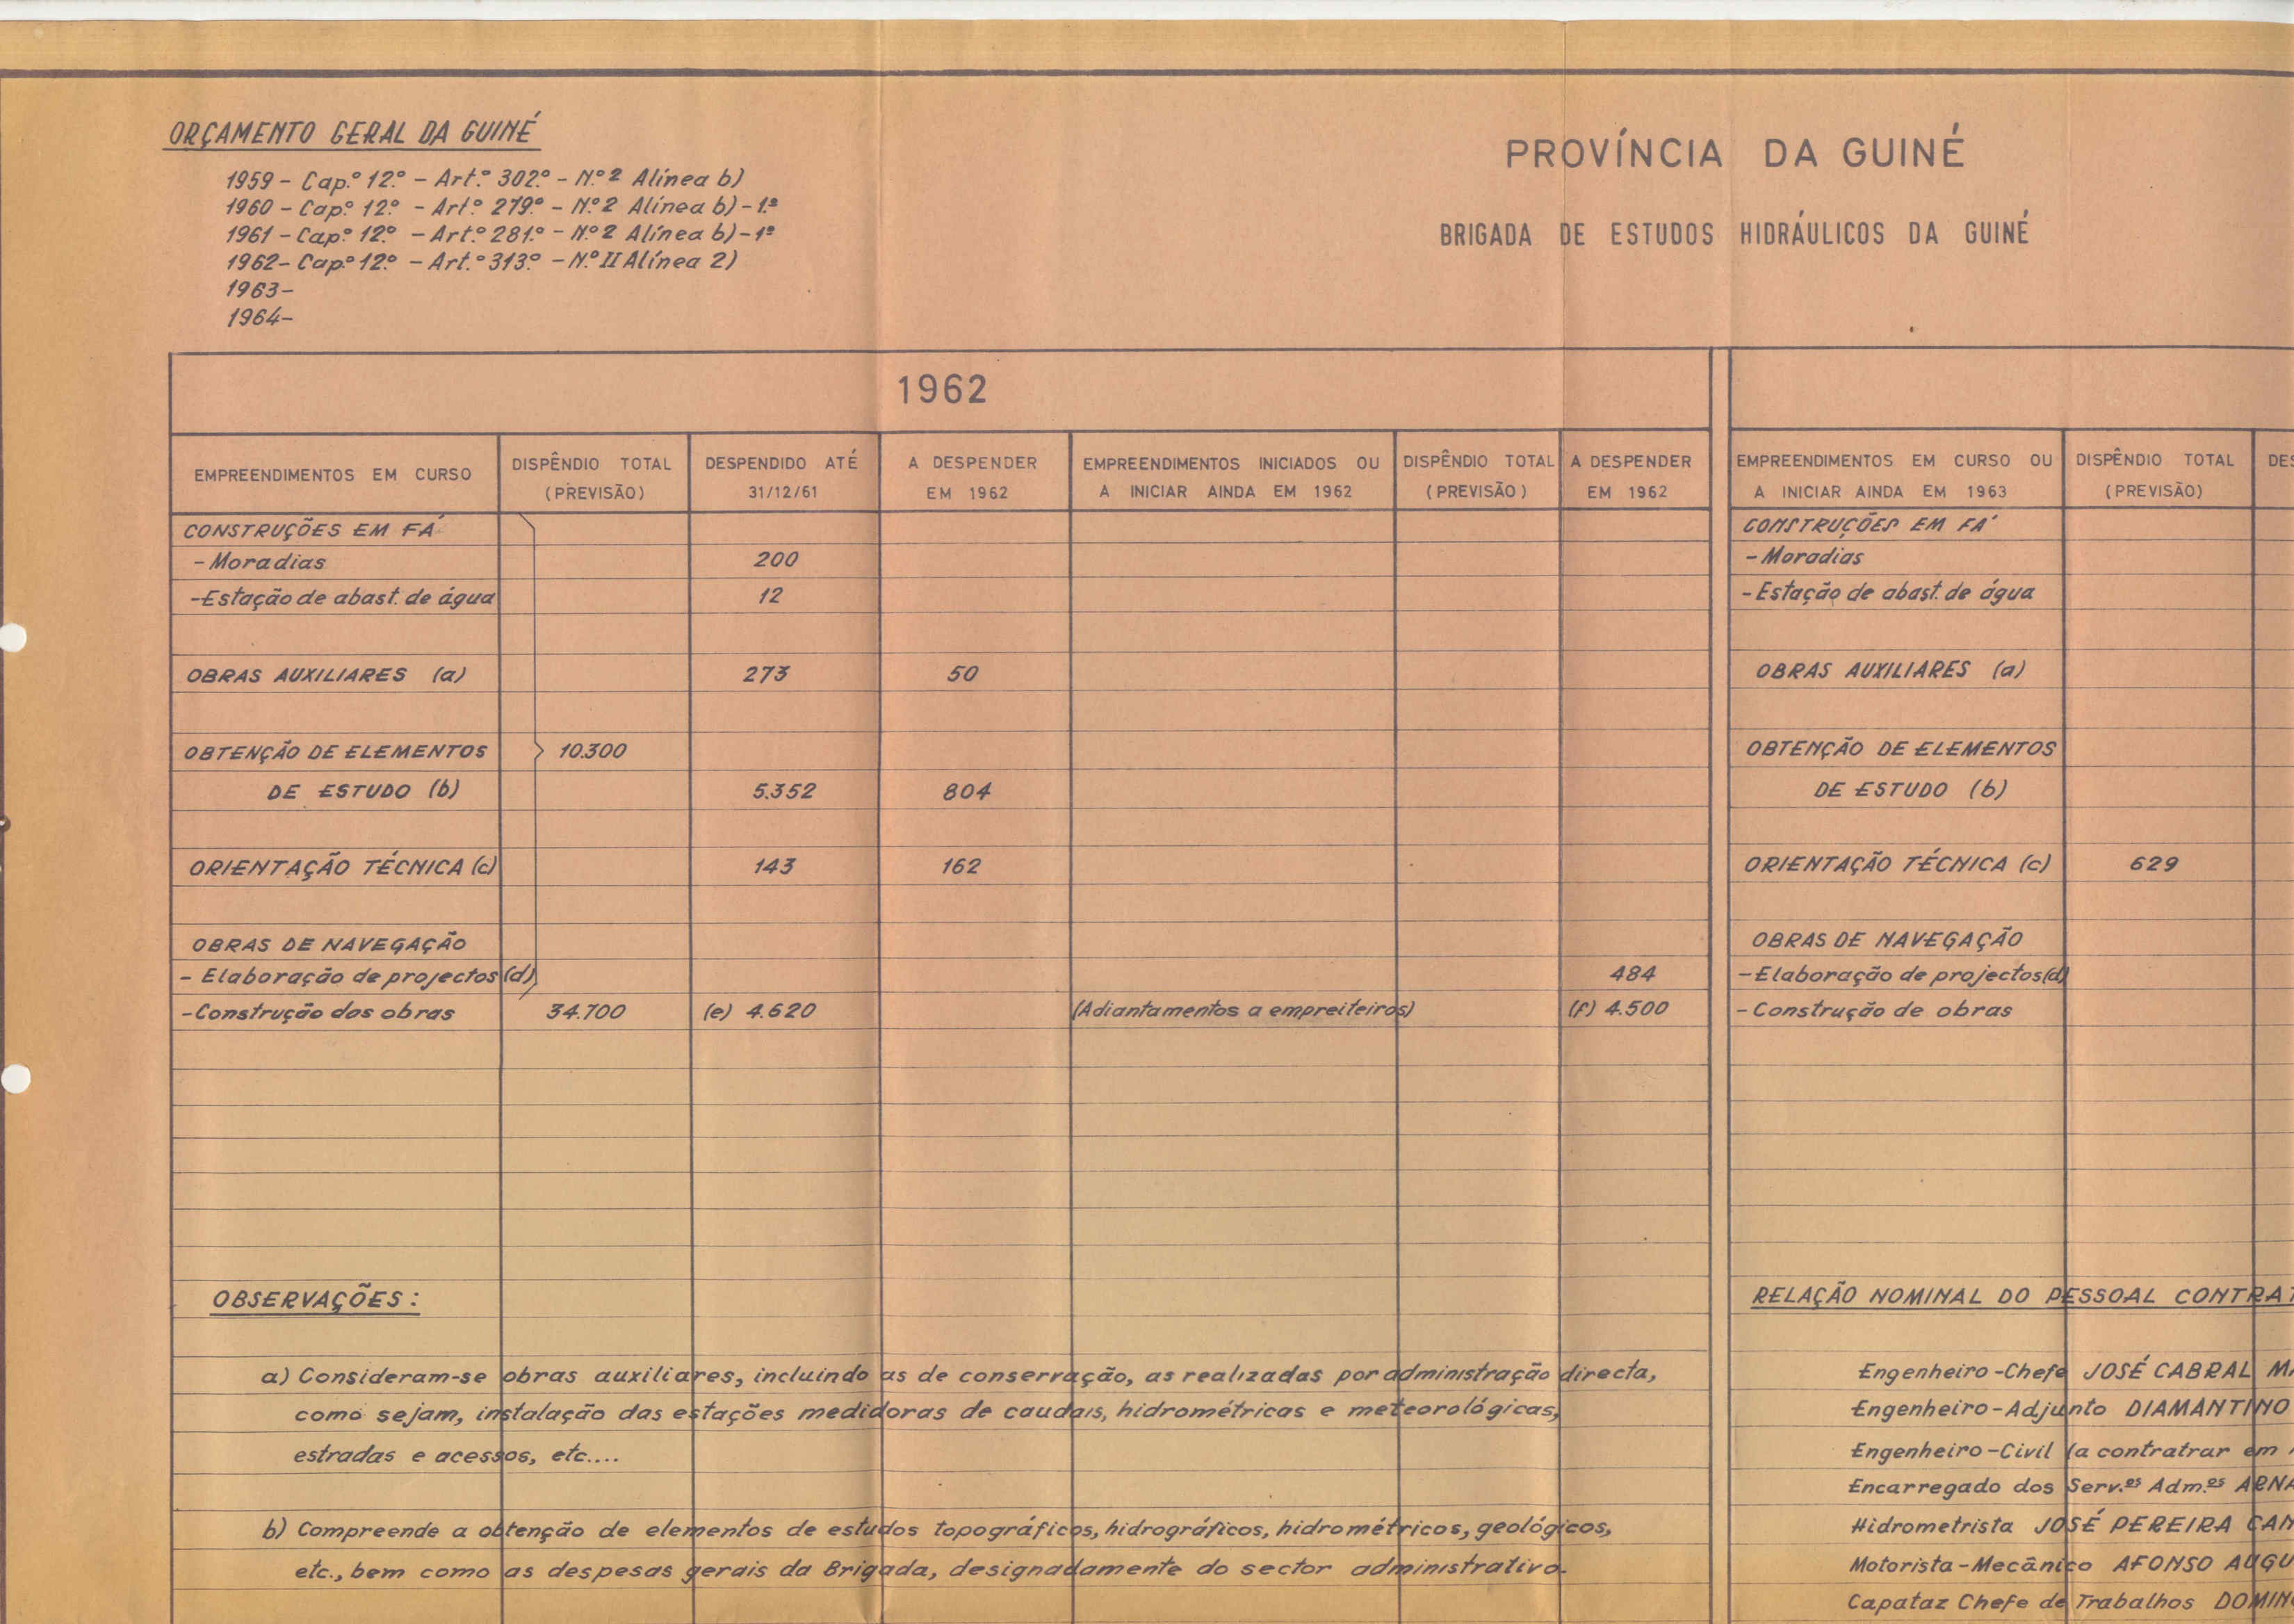 ORÇAMENTO GERAL DA GUINÉ
1959 – Cap.º 12.º – Art.º 302.º – N.º 2 Alínea b)
1960 – Cap.º 12.º – Art.º 279.º – N.º 2 Alínea b) – 1.º
1961 – Cap.º 12.º – Art.º 281.º – N.º 2 Alínea b) – 1º
1962 – Cap.º 12.º – Art.º 313.º – N.º II Alínea 2)
1963 –
1964 –
PROVÍNCIA DA GUINÉ
BRIGADA DE ESTUDOS HIDRÁULICOS DA GUINÉ
1962
EMPREENDIMENTOS EM CURSO
DISPÊNDIO TOTAL
(PREVISÃO)
DESPENDIDO ATÉ
31/12/61
A DESPENDER
EM 1962
EMPREENDIMENTOS INICIADOS OU
A INICIAR AINDA EM 1962
DISPÊNDIO TOTAL
(PREVISÃO)
A DESPENDER
EM 1962
CONSTRUÇÕES EM FÁ
– Moradias 200
– Estação de abast. de água 12
OBRAS AUXILIARES (a) 273 50
OBTENÇÃO DE ELEMENTOS 10.300
DE ESTUDO (b) 5.352 804
ORIENTAÇÃO TÉCNICA (c) 143 162
OBRAS DE NAVEGAÇÃO
– Elaboração de projectos (d) 484
– Construção das obras 34.700 (e) 4.620 (Adiantamentos a empreiteiros) (f) 4.500
OBSERVAÇÕES:
a) Consideram-se obras auxiliares, incluindo as de conservação, as realizadas por administração directa,
como sejam, instalação das estações medidoras de caudais, hidrométricas e meteorológicas,
estradas e acessos, etc....
b) Compreende a obtenção de elementos de estudos topográficos, hidrográficos, hidrométricos, geológicos,
etc., bem como as despesas gerais da Brigada, designadamente do sector administrativo.
EMPREENDIMENTOS EM CURSO OU
A INICIAR AINDA EM 1963
DISPÊNDIO TOTAL
(PREVISÃO)
DES
CONSTRUÇÕES EM FÁ
– Moradias
– Estação de abast. de água
OBRAS AUXILIARES (a)
OBTENÇÃO DE ELEMENTOS
DE ESTUDO (b)
ORIENTAÇÃO TÉCNICA (c) 629
OBRAS DE NAVEGAÇÃO
– Elaboração de projectos (d)
– Construção de obras
RELAÇÃO NOMINAL DO PESSOAL CONTRAT
Engenheiro-Chefe JOSÉ CABRAL MA
Engenheiro-Adjunto DIAMANTINO
Engenheiro-Civil (a contratrar em
Encarregado dos Serv.os Adm.os ARNA
Hidrometrista JOSÉ PEREIRA CAN
Motorista-Mecânico AFONSO AUGU
Capataz Chefe de Trabalhos DOMIN